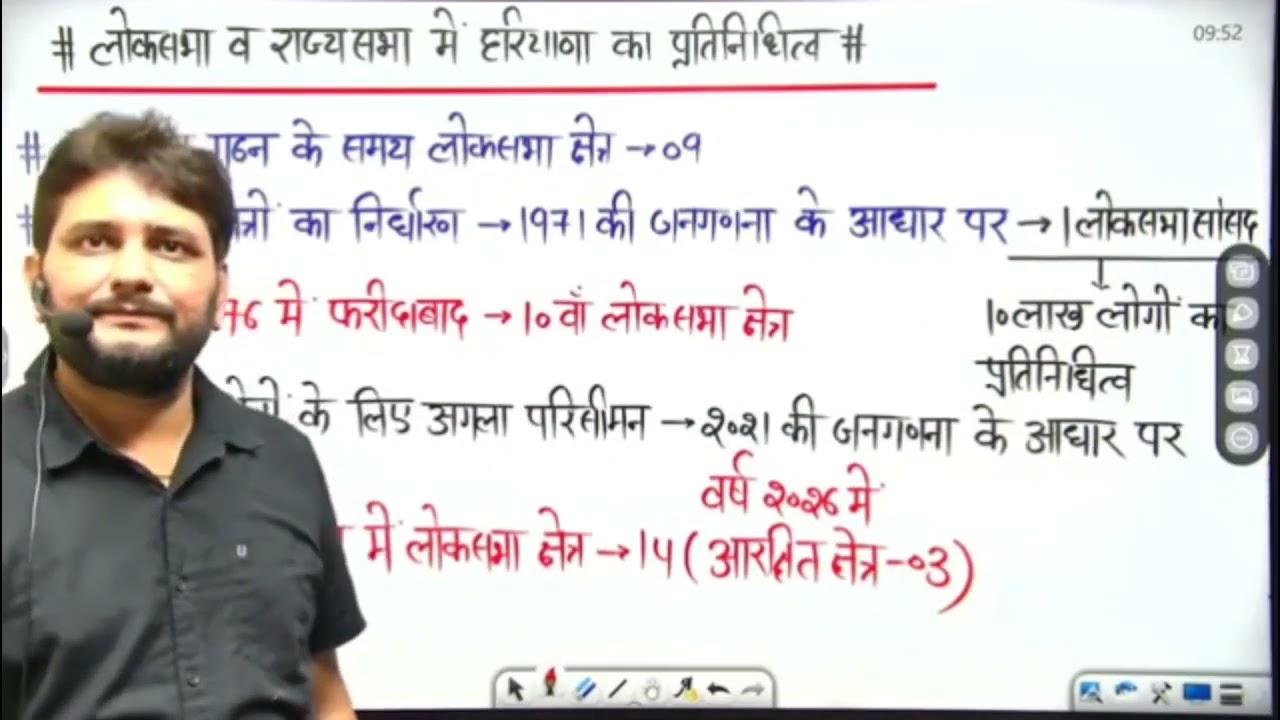 # लोकसभा व राज्यसभा में हरियाणा का प्रतिनिधित्व #
09:52
# गठन के समय लोकसभा क्षेत्र → 09
का निर्धारण → 1971 की जनगणना के आधार पर → 1 लोकसभा सांसद
76 में फरीदाबाद → 10 वाँ लोकसभा क्षेत्र
10 लाख लोगों का
प्रतिनिधित्व
के लिए अगला परिसीमन → 2021 की जनगणना के आधार पर
वर्ष 2026 में
में लोकसभा क्षेत्र → 14 (आरक्षित क्षेत्र - 03)
U